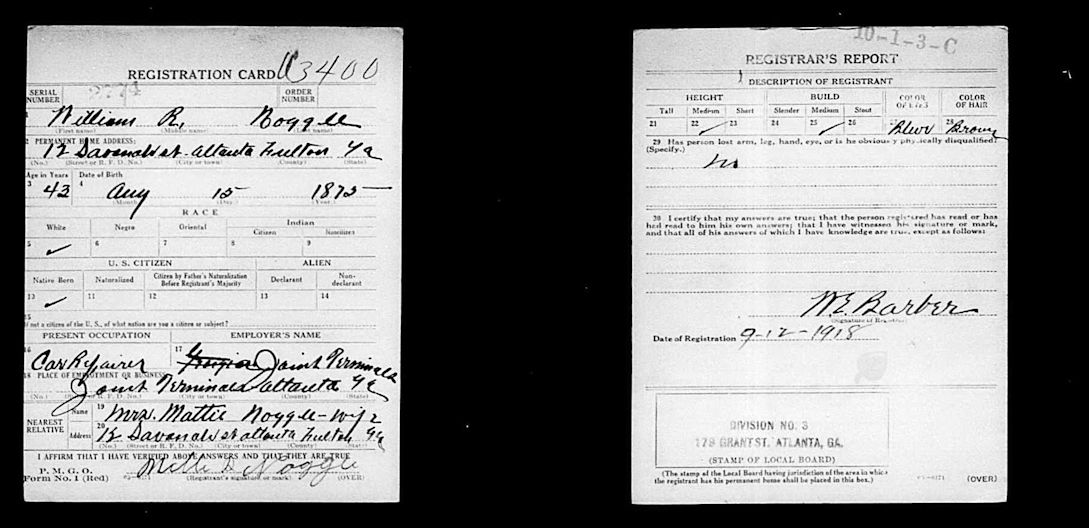 REGISTRATION CARD
3400
SERIAL NUMBER
ORDER NUMBER
William R. Noggle
(First name) (Middle name) (Last name)
2 PERMANENT HOME ADDRESS:
12 St. Atlanta Fulton Ga
(No.) (Street or R. F. D. No.) (City or town) (County) (State)
Age in Years Date of Birth
3 43 4 Aug 15 1875
(Month) (Day) (Year)
RACE
White Negro Oriental Indian
Citizen Noncitizen
5 ✓ 6 7 8 9
U. S. CITIZEN ALIEN
Native Born Naturalized Citizen by Father's Naturalization Before Registrant's Majority Declarant Non-declarant
10 ✓ 11 12 13 14
15
If not a citizen of the U. S., of what nation are you a citizen or subject?
PRESENT OCCUPATION EMPLOYER'S NAME
16 Car Repairer 17 Joint Terminals
18 PLACE OF EMPLOYMENT OR BUSINESS
Joint Terminals Atlanta Ga
(No.) (Street or R. F. D. No.) (City or town) (County) (State)
NEAREST RELATIVE
Name 19 Mrs. Mattie Noggle - wife
Address 20 12 St Atlanta Fulton Ga
(No.) (Street or R. F. D. No.) (City or town) (County) (State)
I AFFIRM THAT I HAVE VERIFIED ABOVE ANSWERS AND THAT THEY ARE TRUE
P. M. G. O.
Form No. 1 (Red)
Noggle
(Registrant's signature or mark) (OVER)
10-1-3-C
REGISTRAR'S REPORT
DESCRIPTION OF REGISTRANT
HEIGHT BUILD COLOR OF EYES COLOR OF HAIR
Tall Medium Short Slender Medium Stout
21 22 ✓ 23 24 25 ✓ 26 27 Blue 28 Brown
29 Has person lost arm, leg, hand, eye, or is he obviously physically disqualified?
(Specify.)
No
30 I certify that my answers are true; that the person registered has read or has
had read to him his own answers; that I have witnessed his signature or mark,
and that all of his answers of which I have knowledge are true, except as follows:
W. E. Barber
(Signature of Registrar)
Date of Registration 9-12-1918
DIVISION NO. 3
179 GRANT ST. ATLANTA, GA.
(STAMP OF LOCAL BOARD)
(The stamp of the Local Board having jurisdiction of the area in which
the registrant has his permanent home shall be placed in this box.)
(OVER)